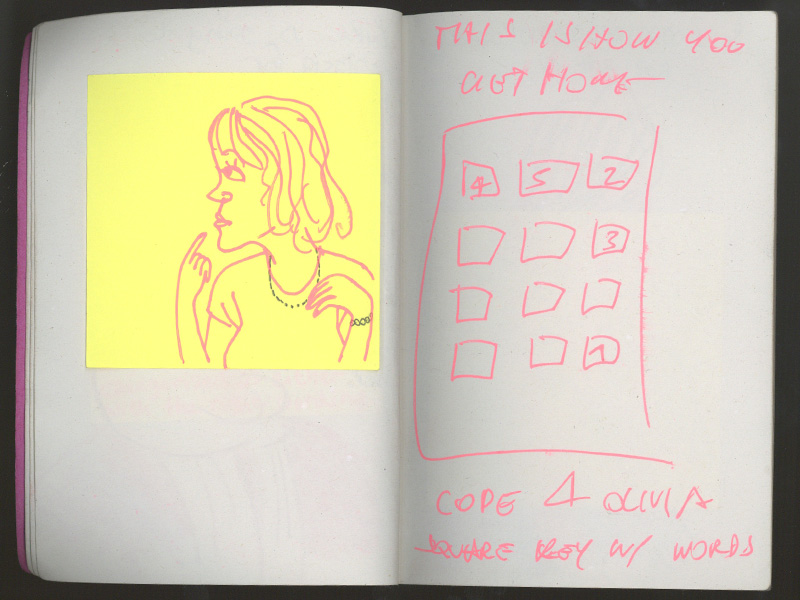 THIS IS HOW YOU
GET HOME
4 5 2
3
1
CODE 4 OLIVIA
SQUARE KEY W/ WORDS